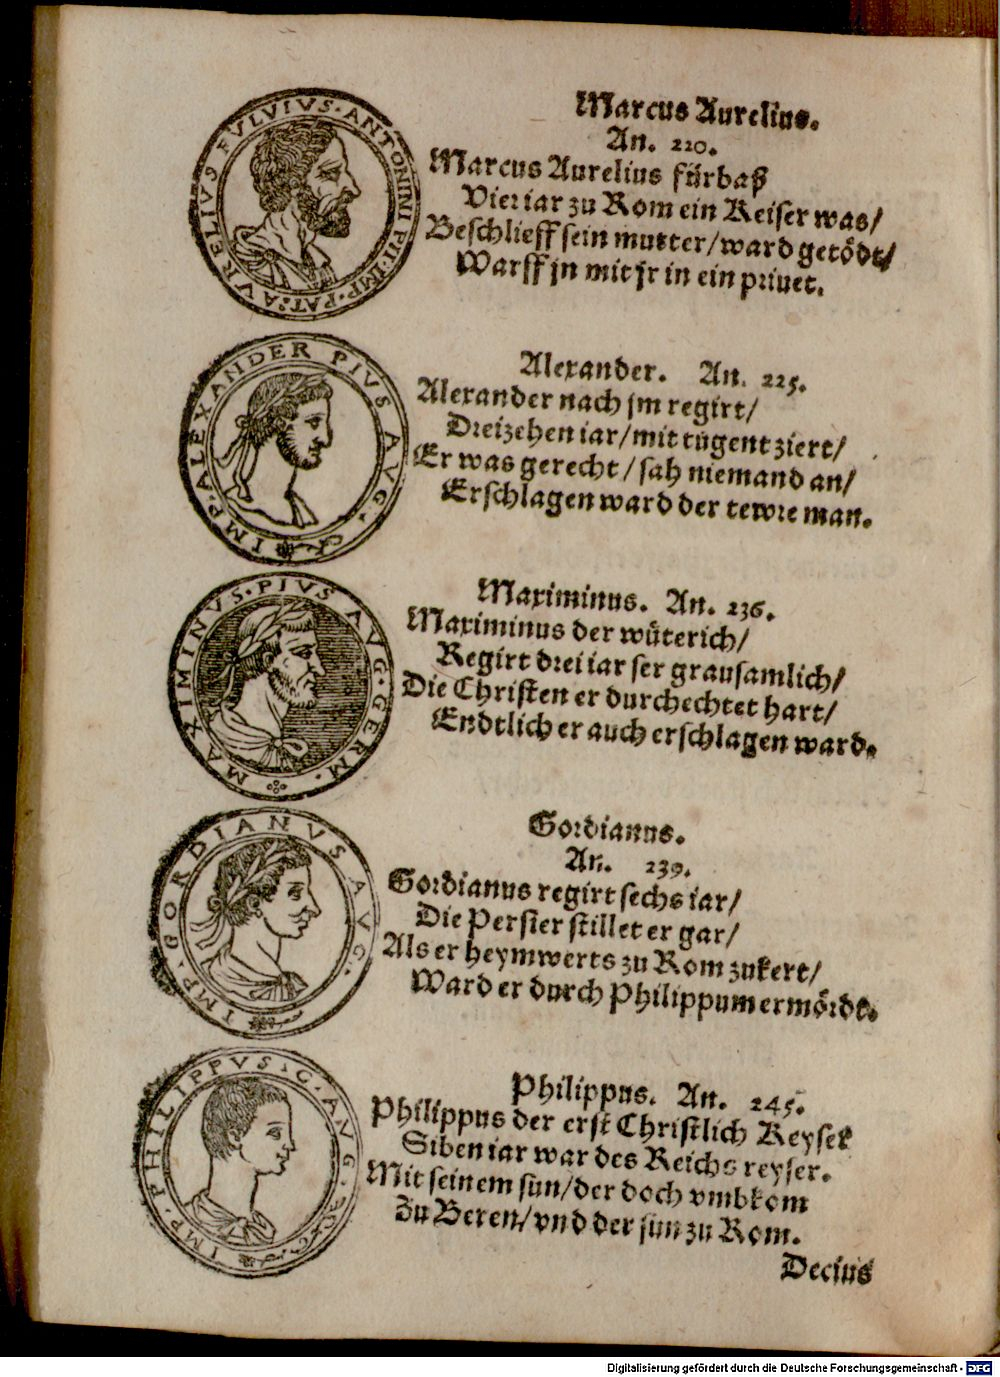 AVRELIVS FVLVIVS·ANTONINI PII·IMP·PAT:
Marcus Aurelius.
An. 220.
Marcus Aurelius fürbaß
Vier iar zu Rom ein Keiser was/
Beschlieff sein mutter/ward getödt/
Warff jn mit jr in ein priuet.
IMP·ALEXANDER PIVS AVG·
Alexander. An. 225.
Alexander nach jm regirt/
Dreizehen iar/mit tugent ziert/
Er was gerecht/sah niemand an/
Erschlagen ward der tewre man.
MAXIMINVS·PIVS AVG·GERM·
Maximinus. An. 236.
Maximinus der wüterich/
Regirt drei iar ser grausamlich/
Die Christen er durchechtet hart/
Endtlich er auch erschlagen ward.
IMP·GORDIANVS AVG·
Gordianus.
An. 239.
Gordianus regirt sechs iar/
Die Persier stillet er gar/
Als er heymwerts zu Rom zukert/
Ward er durch Philippum ermördt.
IMP·PHILIPPVS·C·AVG·
Philippus. An. 245.
Philippus der erst Christlich Keyser
Siben iar war des Reichs reyser.
Mit seinem sun/der doch vmbkom
Zu Beren/vnd der sun zu Rom.
Decius
Digitalisierung gefördert durch die Deutsche Forschungsgemeinschaft - DFG